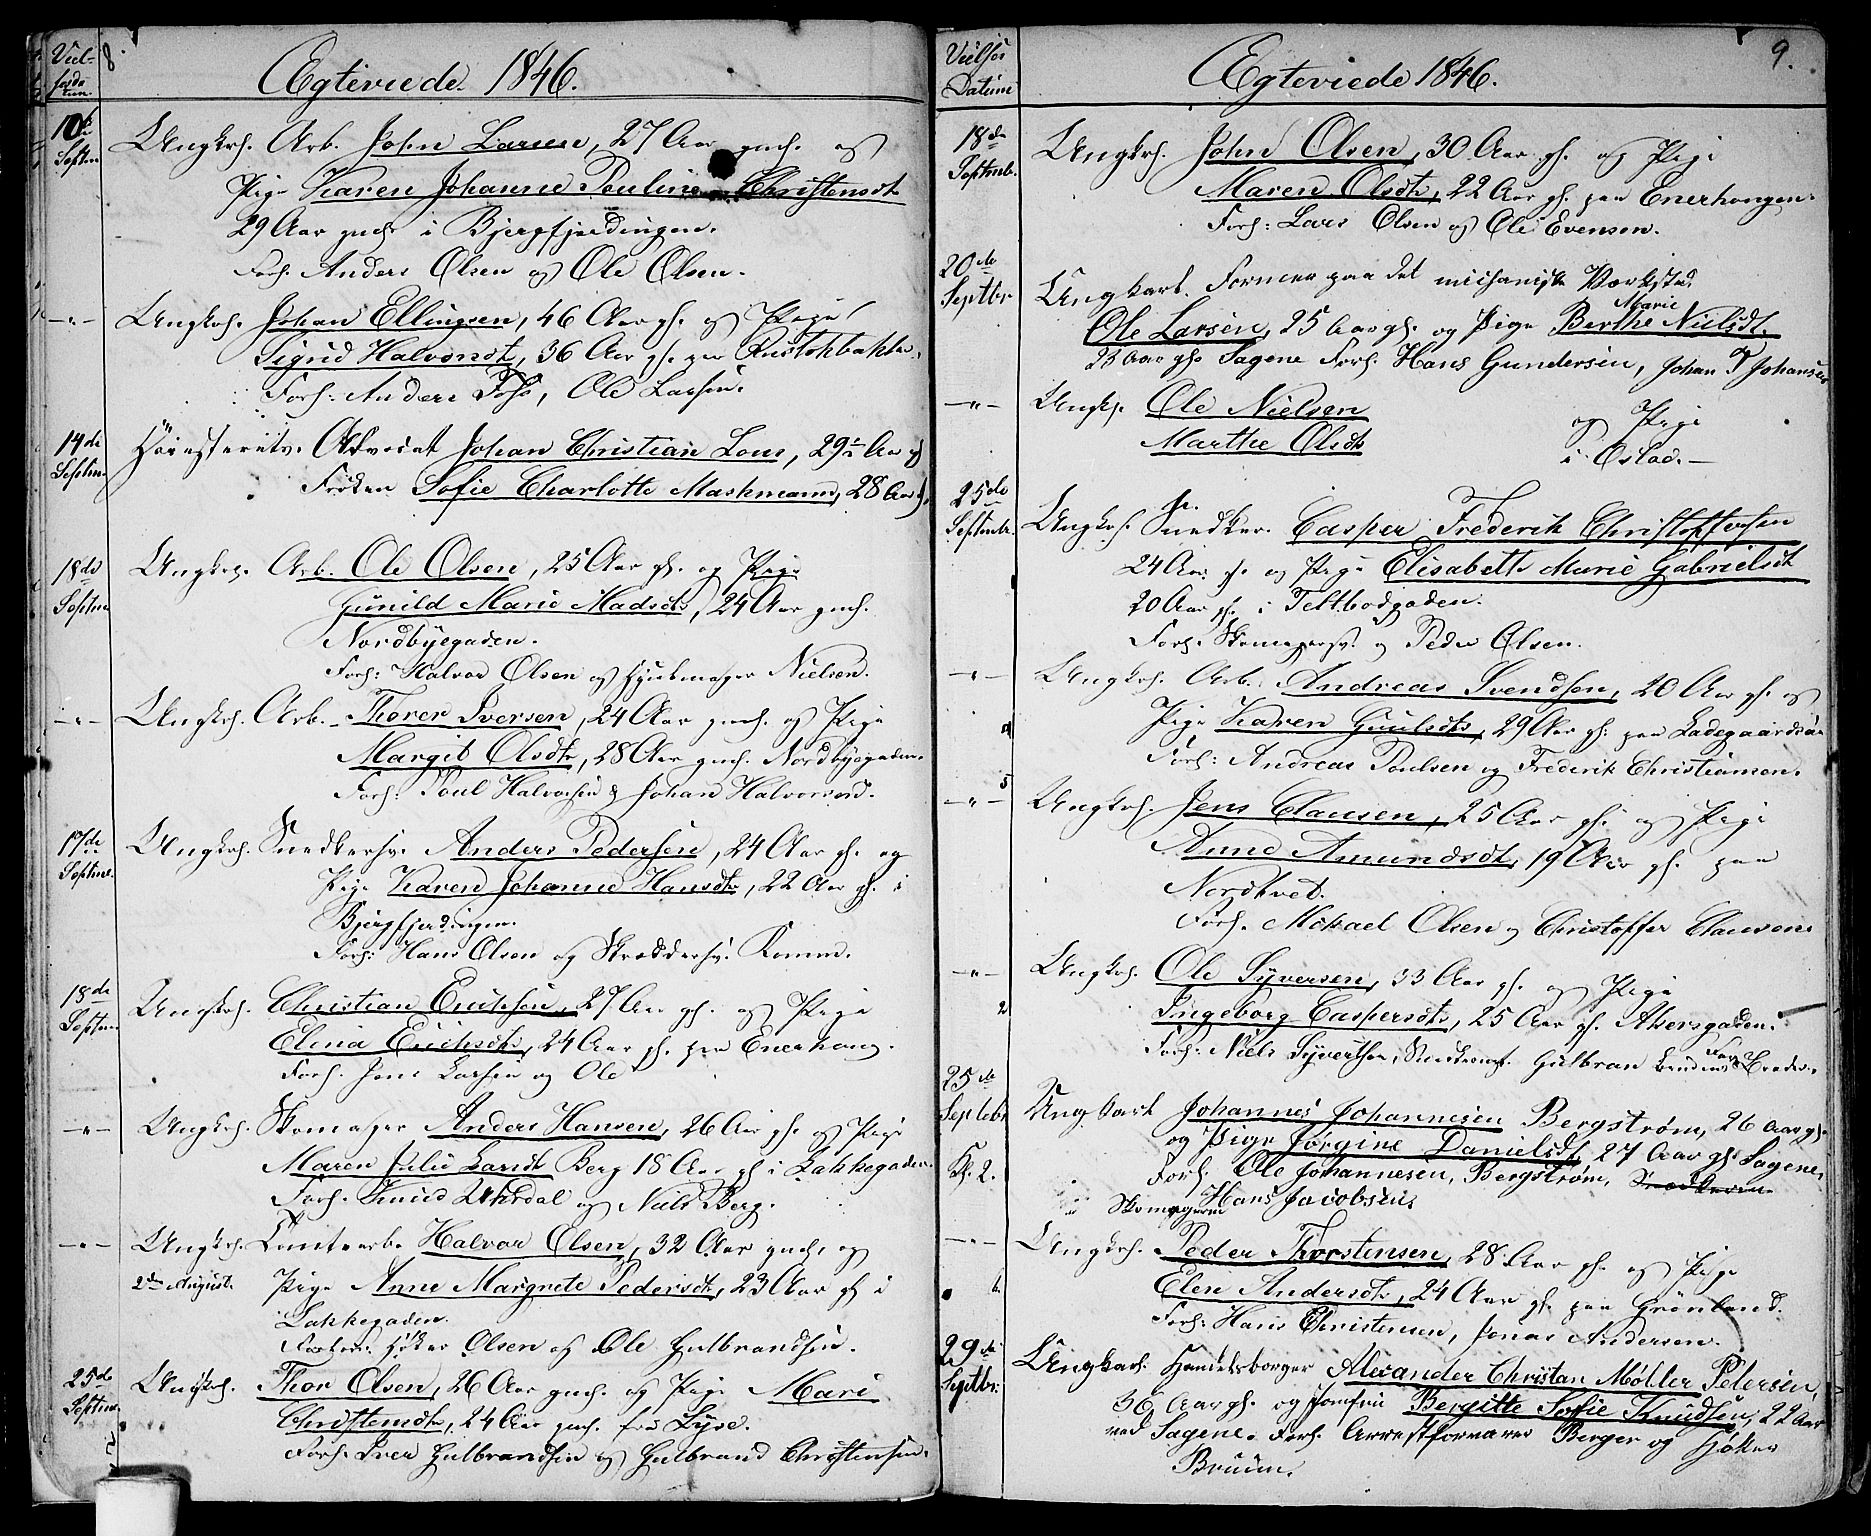 8.
Viel-
Ægteviede 1846.
10de
Septm
Ungkrh. Arb. John Larsen, 27 Aar gmh. og
Pige Karen Johanne Pauline Christensdt
29 Aar gmh. i Bjergfjerdingen.
Forh. Anders Olsen og Ole Olsen.
-"- Ungkrh. Johan Ellingsen, 46 Aar gh. og Pige
Sigrid Halvorsdt, 36 Aar gh. paa Rustokbakken.
Forh: Anders Foss, Ole Larsen.
14de
Septm.
Høiesteretsv. Advocat Johan Christian Lous, 29½ Aar og
Frøken Sofie Charlotte Maskmann, 28 Aar
18de
Septm
Ungkrh. Arb. Ole Olsen, 25 Aar gh. og Pige
Gunild Marie Madsdt, 24 Aar gmh.
Nordbyegaden.
Forh: Halvor Olsen og Hjulmager Nielsen.
-"- Ungkrh. Arb. Thorer Iversen, 24 Aar gmh. og Pige
Margit Olsdtr, 28 Aar gmh. Nordbyegaden.
Forh: Poul Halvorsen & Johan Halvorsen.
17de
Septmb.
Ungkrh. Snedkersv. Anders Pedersen, 24 Aar gh. og
Pige Karen Johanne Hansdtr, 22 Aar gh. i
Bjergfjerdingen.
Forh: Hans Olsen og Skreddersv. Komme.
18de
Septm
Ungkrh. Christian Erichsen, 27 Aar gh. og Pige
Elina Erichsdtr, 24 Aar gh. paa Enerhoug.
Forh. Jens Larsen og Ole
-"- Ungkrh. Skomager Anders Hansen, 26 Aar gh. og Pige
Maren Julie Larsdt Berg 18 Aar gh. i Lakkegaden.
Forh. Knud Uhrdal og Niels Berg.
-"- Ungkrh. Halvor Olsen, 32 Aar gmh. og
2den August. Pige Anne Margrete Pedersdt, 23 Aar gh i
Lakkegaden.
Høker Olsen og Ole Gulbrandsen.
25de
Septm.
Ungkrh. Thor Olsen, 26 Aar gmh. og Pige Mari
Christensdtr, 24 Aar gmh. fra
Forh. Iver Gulbrandsen og Gulbrand Christensen.
9.
Vielses
Datum
Ægteviede 1846.
18de
Septmb.
Ungkrh. John Olsen, 30 Aar gh. og Pige
Maren Olsdtr, 22 Aar gh. paa Enerhougen.
Forh: Lars Olsen og Ole Evensen.
20de
Septbr
Ungkarl. Former paa det mechaniske Værksted
Ole Larsen, 25 Aar gh. og Pige Berthe Marie Nielsdt.
23 Aar gh. Sagene Forh. Hans Gundersen, Johan P Johansen
-"- Ungkrh. Ole Nielsen og Pige
Marthe Olsdt i Oslo. -
25de
Septembr.
Ungkrh. Snedker. Casper Frederik Christoffersen
24 Aar gh. og Pige Elisabeth Marie Gabrielsdt
20 Aar gh. i Toldbodgaden.
Forh. Skomagersv. og Peder Olsen.
-"- Ungkrh. Arb. Andreas Svendsen, 20 Aar gh. og
Pige Karen Guulsdtr, 29 Aar gh. paa Ladegaardsøen
Forh: Andreas Poulsen og Frederik Christiansen.
5
-"- Ungkrh. Jens Clausen, 25 Aar gh. og Pige
Anne Amundsdt, 19 Aar gh. paa
Nordtvet.
Forh. Mikael Olsen og Christoffer Clausen.
-"- Ungkrh. Ole Syversen, 33 Aar gh. og Pige
2
Ingeborg Caspersdtr, 25 Aar gh. Akersgaden.
Forh: Niels Syvertsen, Gulbran
25de
Septebr
Kl. 2.
Ungkarl Johannes Johannesen Bergstrøm, 26 Aar gh.
og Pige Jørgine Danielsdt, 27 Aar gh Sagene,
Forh. Ole Johannesen, Bergstrøm,
Skomageren Hans Jacobsen.
-"- Ungkrh. Peder Thorstensen, 28 Aar gh. og Pige
Elen Andersdtr, 24 Aar gh. paa Grønland.
Forh: Hans Christensen, Jonas Andersen.
29de
Septbr.
Ungkarl Handelsborger Alexander Christian Møller Petersen,
36 Aar gh. og Jomfru Bergitte Sofie Knudsen, 22 Aar
ved Sagene. Forh. Arrestforvarer Berger og Høker
Bruun.